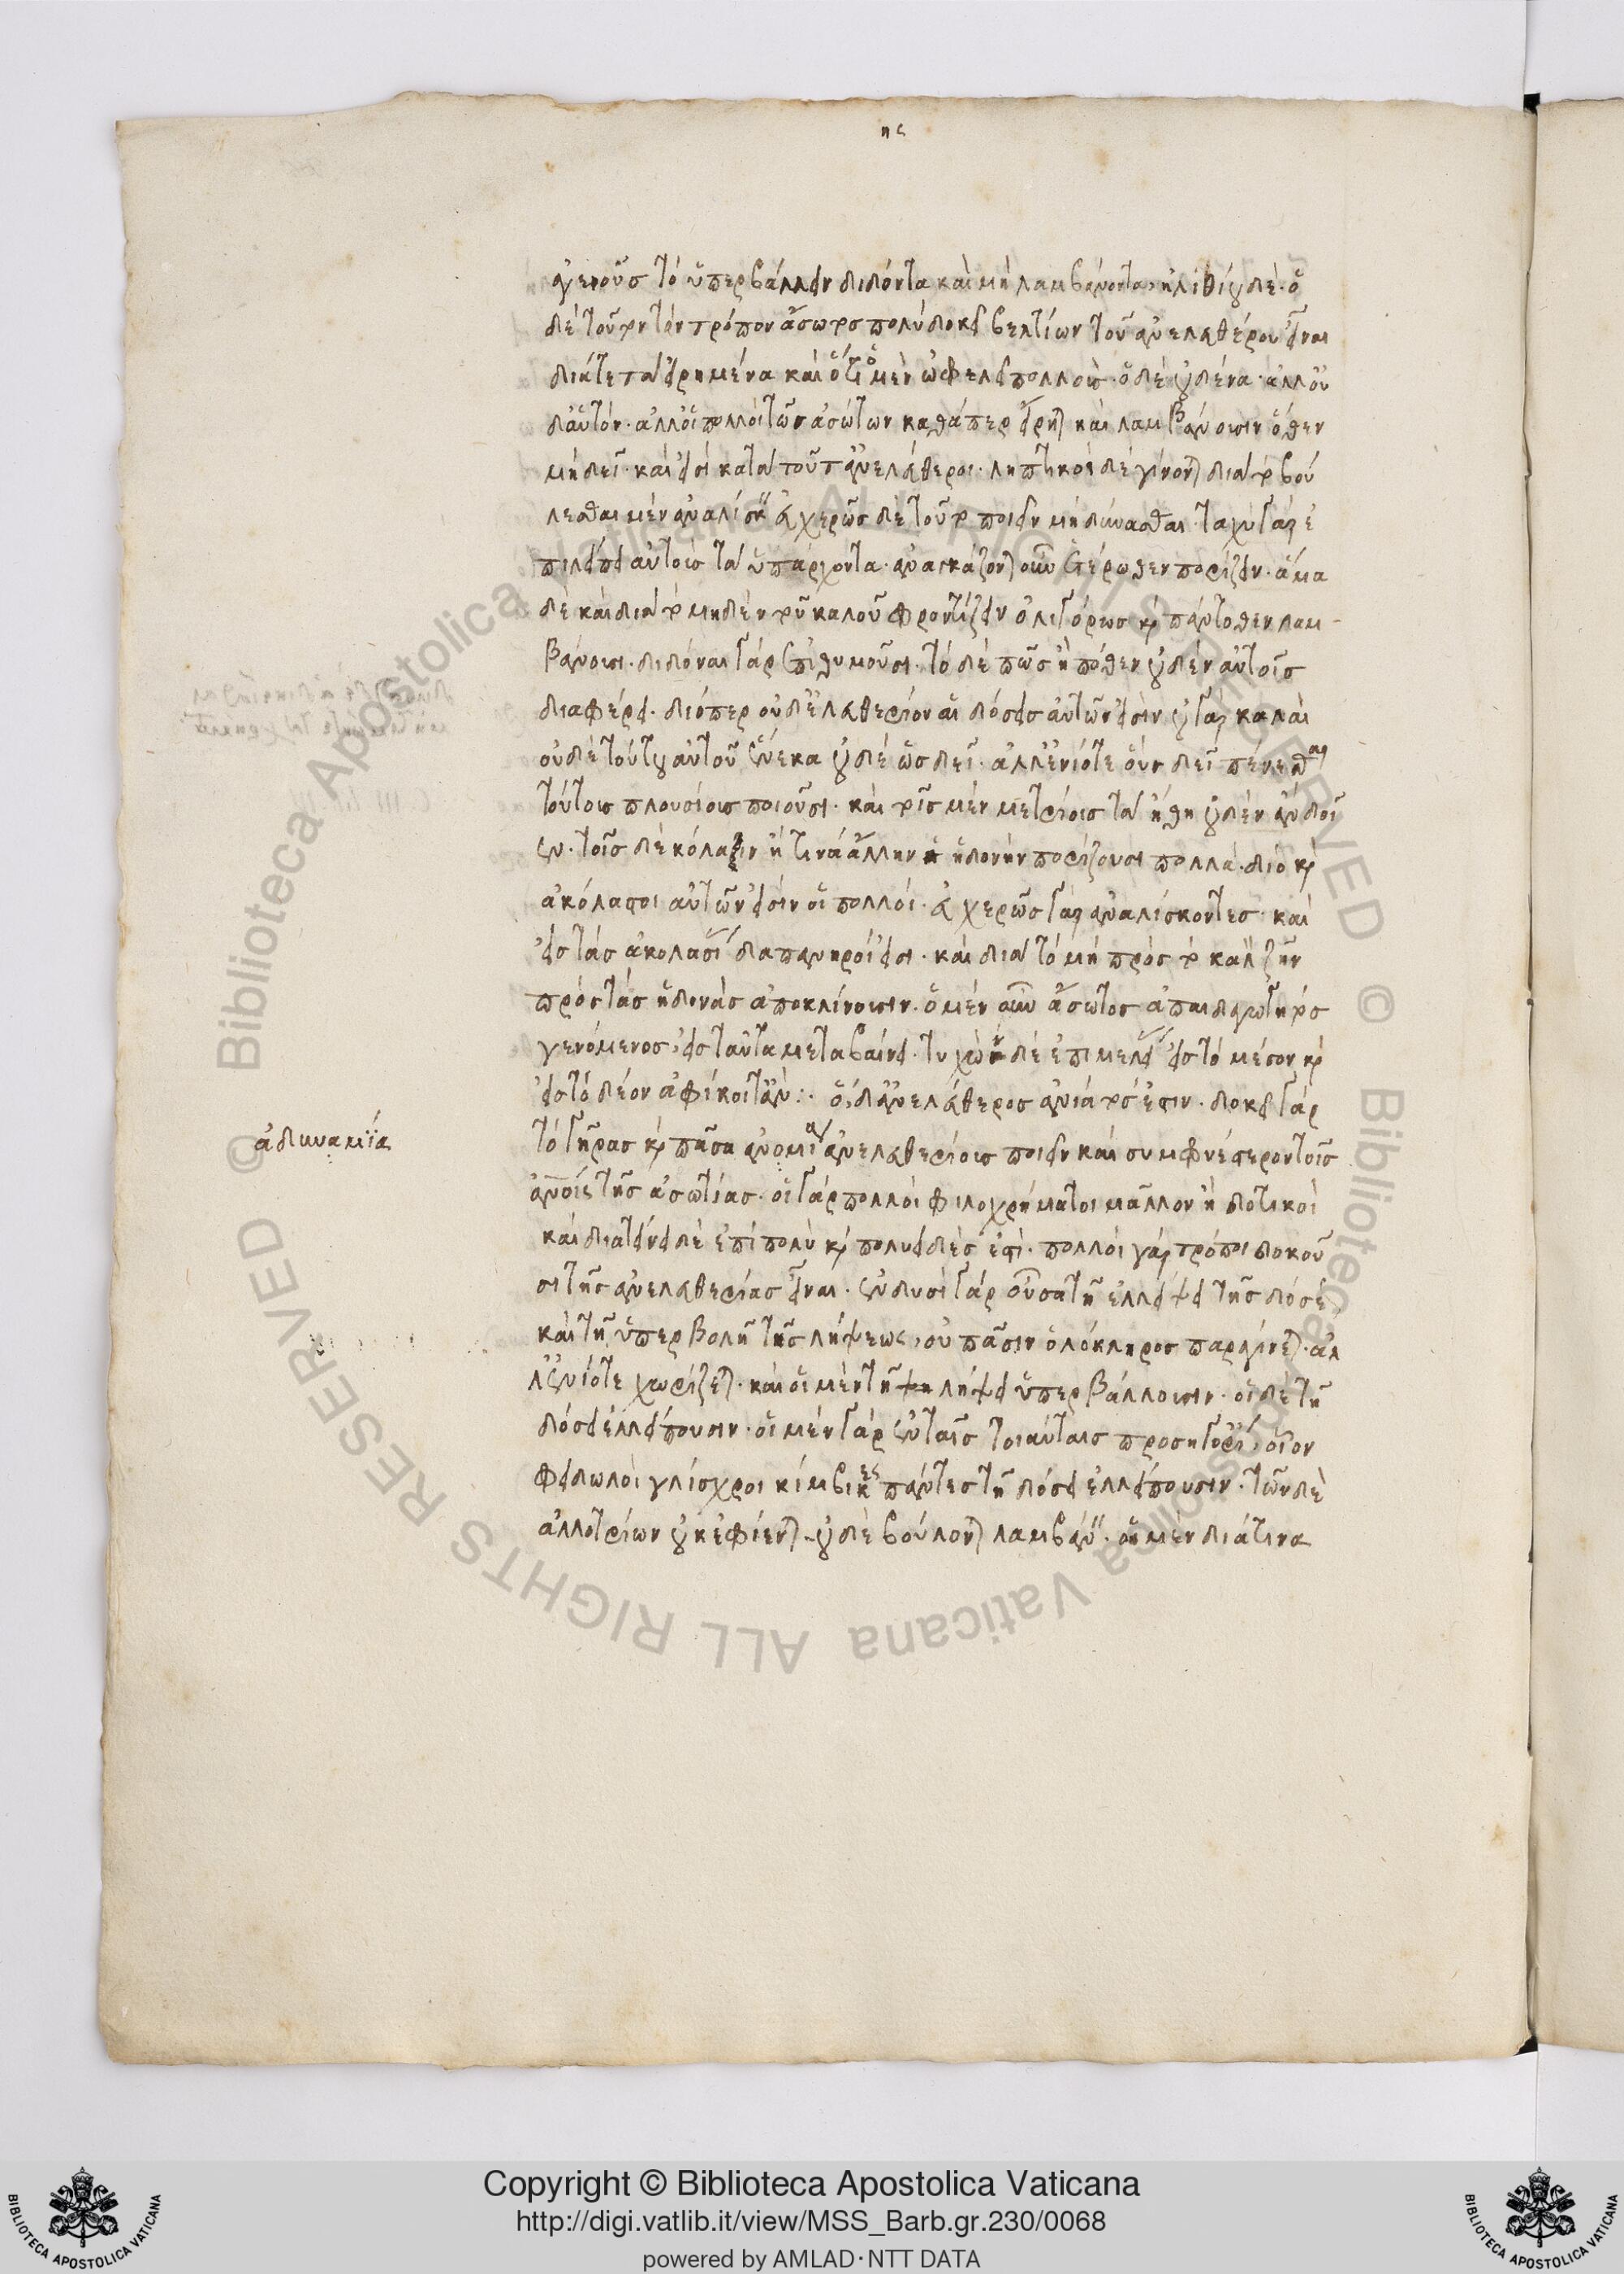 ης
ἀγενοῦς τὸ ὑπερβάλλειν διδόντα καὶ μὴ λαμβάνοντα, ἠλιθίου δέ· ὁ
δὲ τοῦτον τὸν τρόπον ἄσωτος πολὺ δοκεῖ βελτίων τοῦ ἀνελευθέρου εἶναι
διά τε τὰ εἰρημένα καὶ ὅτι ὁ μὲν ὠφελεῖ πολλούς· ὁ δὲ οὐδένα· ἀλλ' οὐ
δ' αὑτόν· ἀλλ' οἱ πολλοὶ τῶν ἀσώτων καθάπερ εἴρηται καὶ λαμβάνουσιν ὅθεν
μὴ δεῖ· καί εἰσι κατὰ τοῦτ' ἀνελεύθεροι· ληπτικοὶ δὲ γίνονται διὰ τὸ βού
λεσθαι μὲν ἀναλίσκειν εὐχερῶς δὲ τοῦτο ποιεῖν μὴ δύνασθαι· ταχὺ γὰρ ἐ
πιλείπει αὐτοὺς τὰ ὑπάρχοντα· ἀναγκάζονται οὖν ἑτέρωθεν πορίζειν· ἅμα
δὲ καὶ διὰ τὸ μηδὲν τοῦ καλοῦ φροντίζειν ὀλιγώρως καὶ πάντοθεν λαμ-
βάνουσι· διδόναι γὰρ ἐπιθυμοῦσι· τὸ δὲ πῶς ἢ πόθεν οὐδὲν αὐτοῖς
διαφέρει· διόπερ οὐδ' ἐλευθέριοι αἱ δόσεις αὐτῶν εἰσὶν οὐ γὰρ καλαὶ
οὐδὲ τούτου αὐτοῦ ἕνεκα οὐδὲ ὡς δεῖ· ἀλλ' ἐνίοτε οὓς δεῖ πένεσθαι
τούτους πλουσίους ποιοῦσι· καὶ τοῖς μὲν μετρίοις τὰ ἤθη οὐδὲν ἂν δοῖ
εν· τοῖς δὲ κόλαξιν ἤ τινα ἄλλην ἡδονὴν πορίζουσι πολλά· διὸ καὶ
ἀκόλαστοι αὐτῶν εἰσιν οἱ πολλοί· εὐχερῶς γὰρ ἀναλίσκοντες καὶ
εἰς τὰς ἀκολασίας δαπανηροί εἰσι· καὶ διὰ τὸ μὴ πρὸς τὸ καλὸν ζῆν
πρὸς τὰς ἡδονὰς ἀποκλίνουσιν· ὁ μὲν οὖν ἄσωτος ἀπαιδαγώγητος
γενόμενος εἰς ταῦτα μεταβαίνει· τυχὼν δὲ ἐπιμελείας εἰς τὸ μέσον καὶ
εἰς τὸ δέον ἀφίκοιτ' ἄν:· ὁ δ' ἀνελεύθερος ἀνίατός ἐστιν· δοκεῖ γὰρ
τὸ γῆρας καὶ πᾶσα ἀνομία ἀνελευθερίους ποιεῖν καὶ συμφυέστερον τοῖς
ἀνθρώποις τῆς ἀσωτίας· οἱ γὰρ πολλοὶ φιλοχρήματοι μᾶλλον ἢ δοτικοὶ
καὶ διατείνει δὲ ἐπὶ πολὺ καὶ πολυειδές ἐστι· πολλοὶ γὰρ τρόποι δοκοῦ
σι τῆς ἀνελευθερίας εἶναι· ἐν δυσὶ γὰρ οὖσα τῇ ἐλλείψει τῆς δόσεως
καὶ τῇ ὑπερβολῇ τῆς λήψεως, οὐ πᾶσιν ὁλόκληρος παραγίνεται· ἀλ
λ' ἐνίοτε χωρίζεται· καὶ οἱ μὲν τῇ λήψει ὑπερβάλλουσιν· οἱ δὲ τῇ
δόσει ἐλλείπουσιν· οἱ μὲν γὰρ ἐν ταῖς τοιαύταις προσηγορίαις, οἷον
φειδωλοὶ γλίσχροι κίμβικες πάντες τῇ δόσει ἐλλείπουσιν· τῶν δὲ
ἀλλοτρίων οὐκ ἐφίενται· οὐδὲ βούλονται λαμβάνειν· οἱ μὲν διά τινα
ἀδυναμΐα
Copyright © Biblioteca Apostolica Vaticana
http://digi.vatlib.it/view/MSS_Barb.gr.230/0068
powered by AMLAD·NTT DATA
BIBLIOTECA APOSTOLICA VATICANA
BIBLIOTECA APOSTOLICA VATICANA